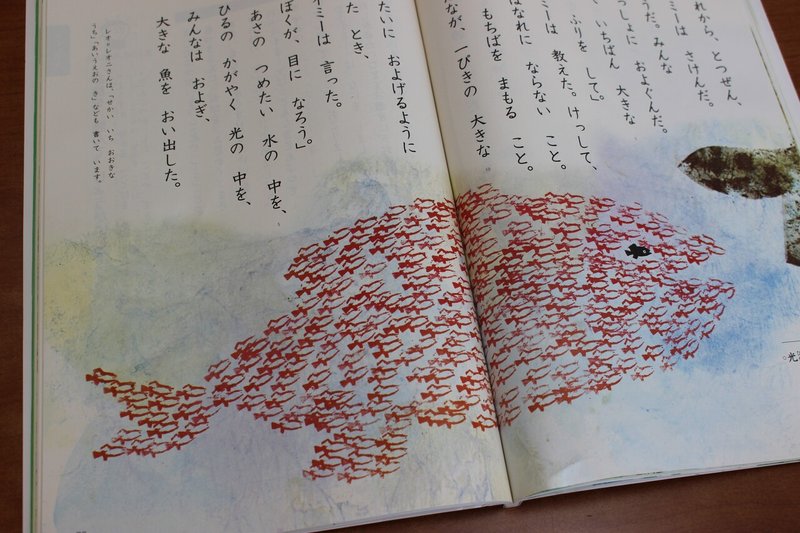 れから、とつぜん、
ミーは さけんだ。
うだ。みんな
っしょに およぐんだ。
で いちばん 大きな
ふりを して。」
ミーは 教えた。けっして、
はなれに ならない こと。
もちばを まもる こと。
なが、一ぴきの 大きな
たいに およげるように
た とき、
イミーは 言った。
ぼくが、目に なろう。」
あさの つめたい 水の 中を、
ひるの かがやく 光の 中を、
みんなは およぎ、
大きな 魚を おい出した。
レオ=レオニさんは、「せかい いち おおきな
うち」「あいうえおの き」なども 書いて います。
光